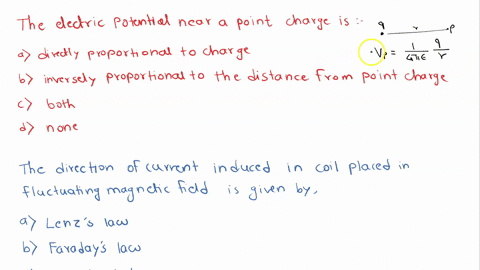 The electric potential near a point charge is :-
q r P
a) directly proportional to charge
Vₚ = 1/4πε q/r
b) inversely proportional to the distance from point charge
c) both
d) none
The direction of current induced in coil placed in
fluctuating magnetic field is given by,
a) Lenz's law
b) Faraday's law